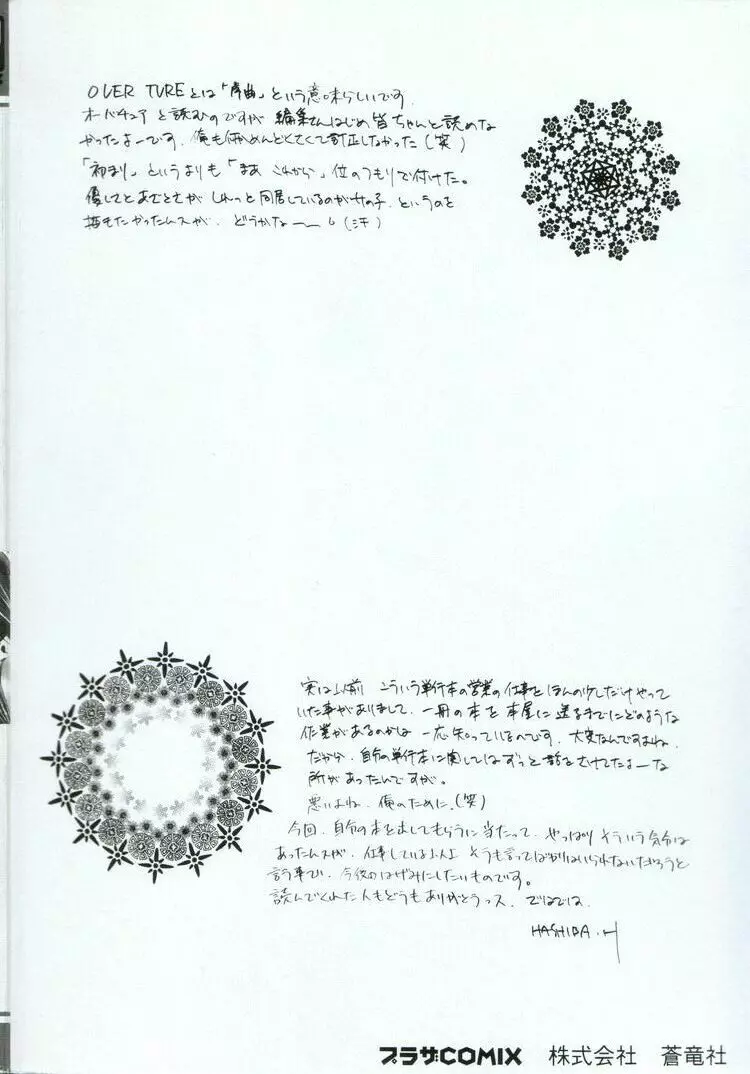 OVER TUREとは「序曲」という意味らしいです.
オーバチュアと読むのですが編集さんはじめ皆ちゃんと読めな
かったよーです. 俺も何かめんどくさくて訂正しなかった(笑)
「初まり」というよりも「まあ これから」位のつもりで付けた。
優しさと しれっと同居しているのが女の子. というのを
描きたかったんスが. どうかなー (汗)
実は以前 こういう単行本の営業の仕事をほんの少しだけやって
いた事がありまして. 一冊の本を本屋に送るまでにどのような
作業があるのかは 一応知っているのです. 大変なんですよね.
だから. 自分の単行本に関してはずっと 避けてたよーな
所があったんですが。
悪いよね. 俺のために.(笑)
今回. 自分の本を出してもらうに当たって. やっぱり そういう気分は
あったんスが. 仕事している以上 そうも言ってばかりはいられないだろうと
言う事で. 今後のはげみにしたいものです。
読んでくれた人もどうもありがとうっス. ではでは.
HASHIBA.H
プラザCOMIX 株式会社 蒼竜社